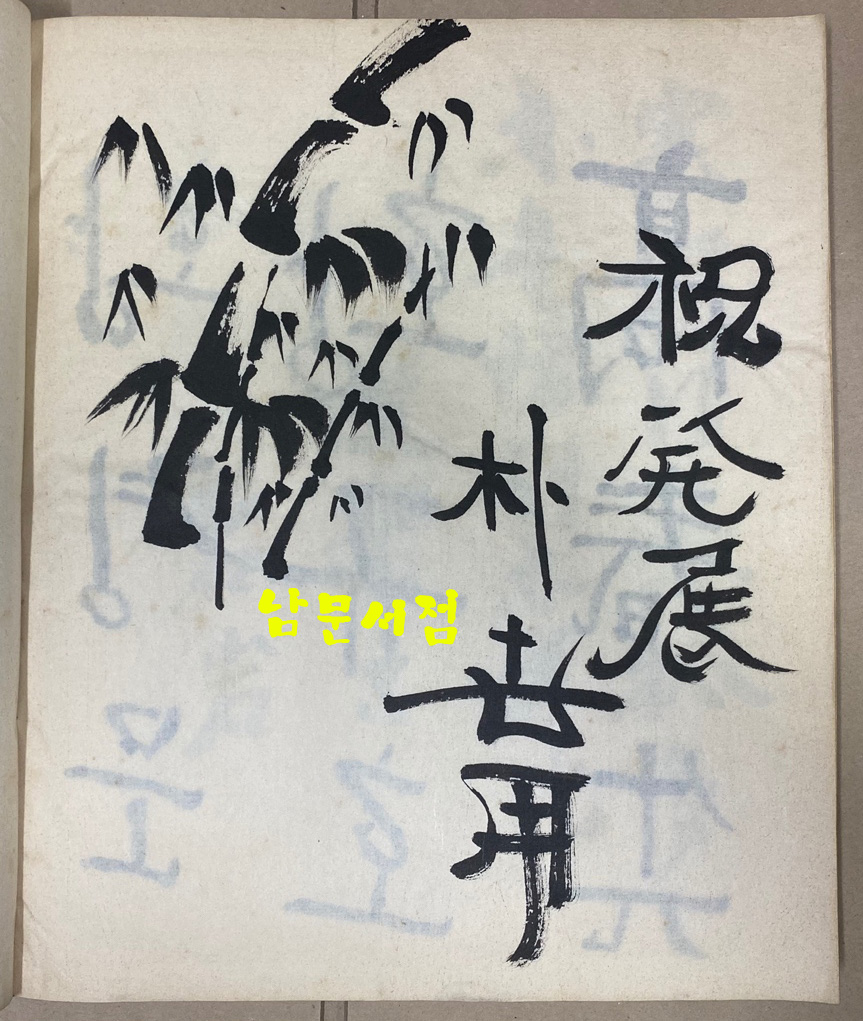 祝発展
朴世用
남문서점